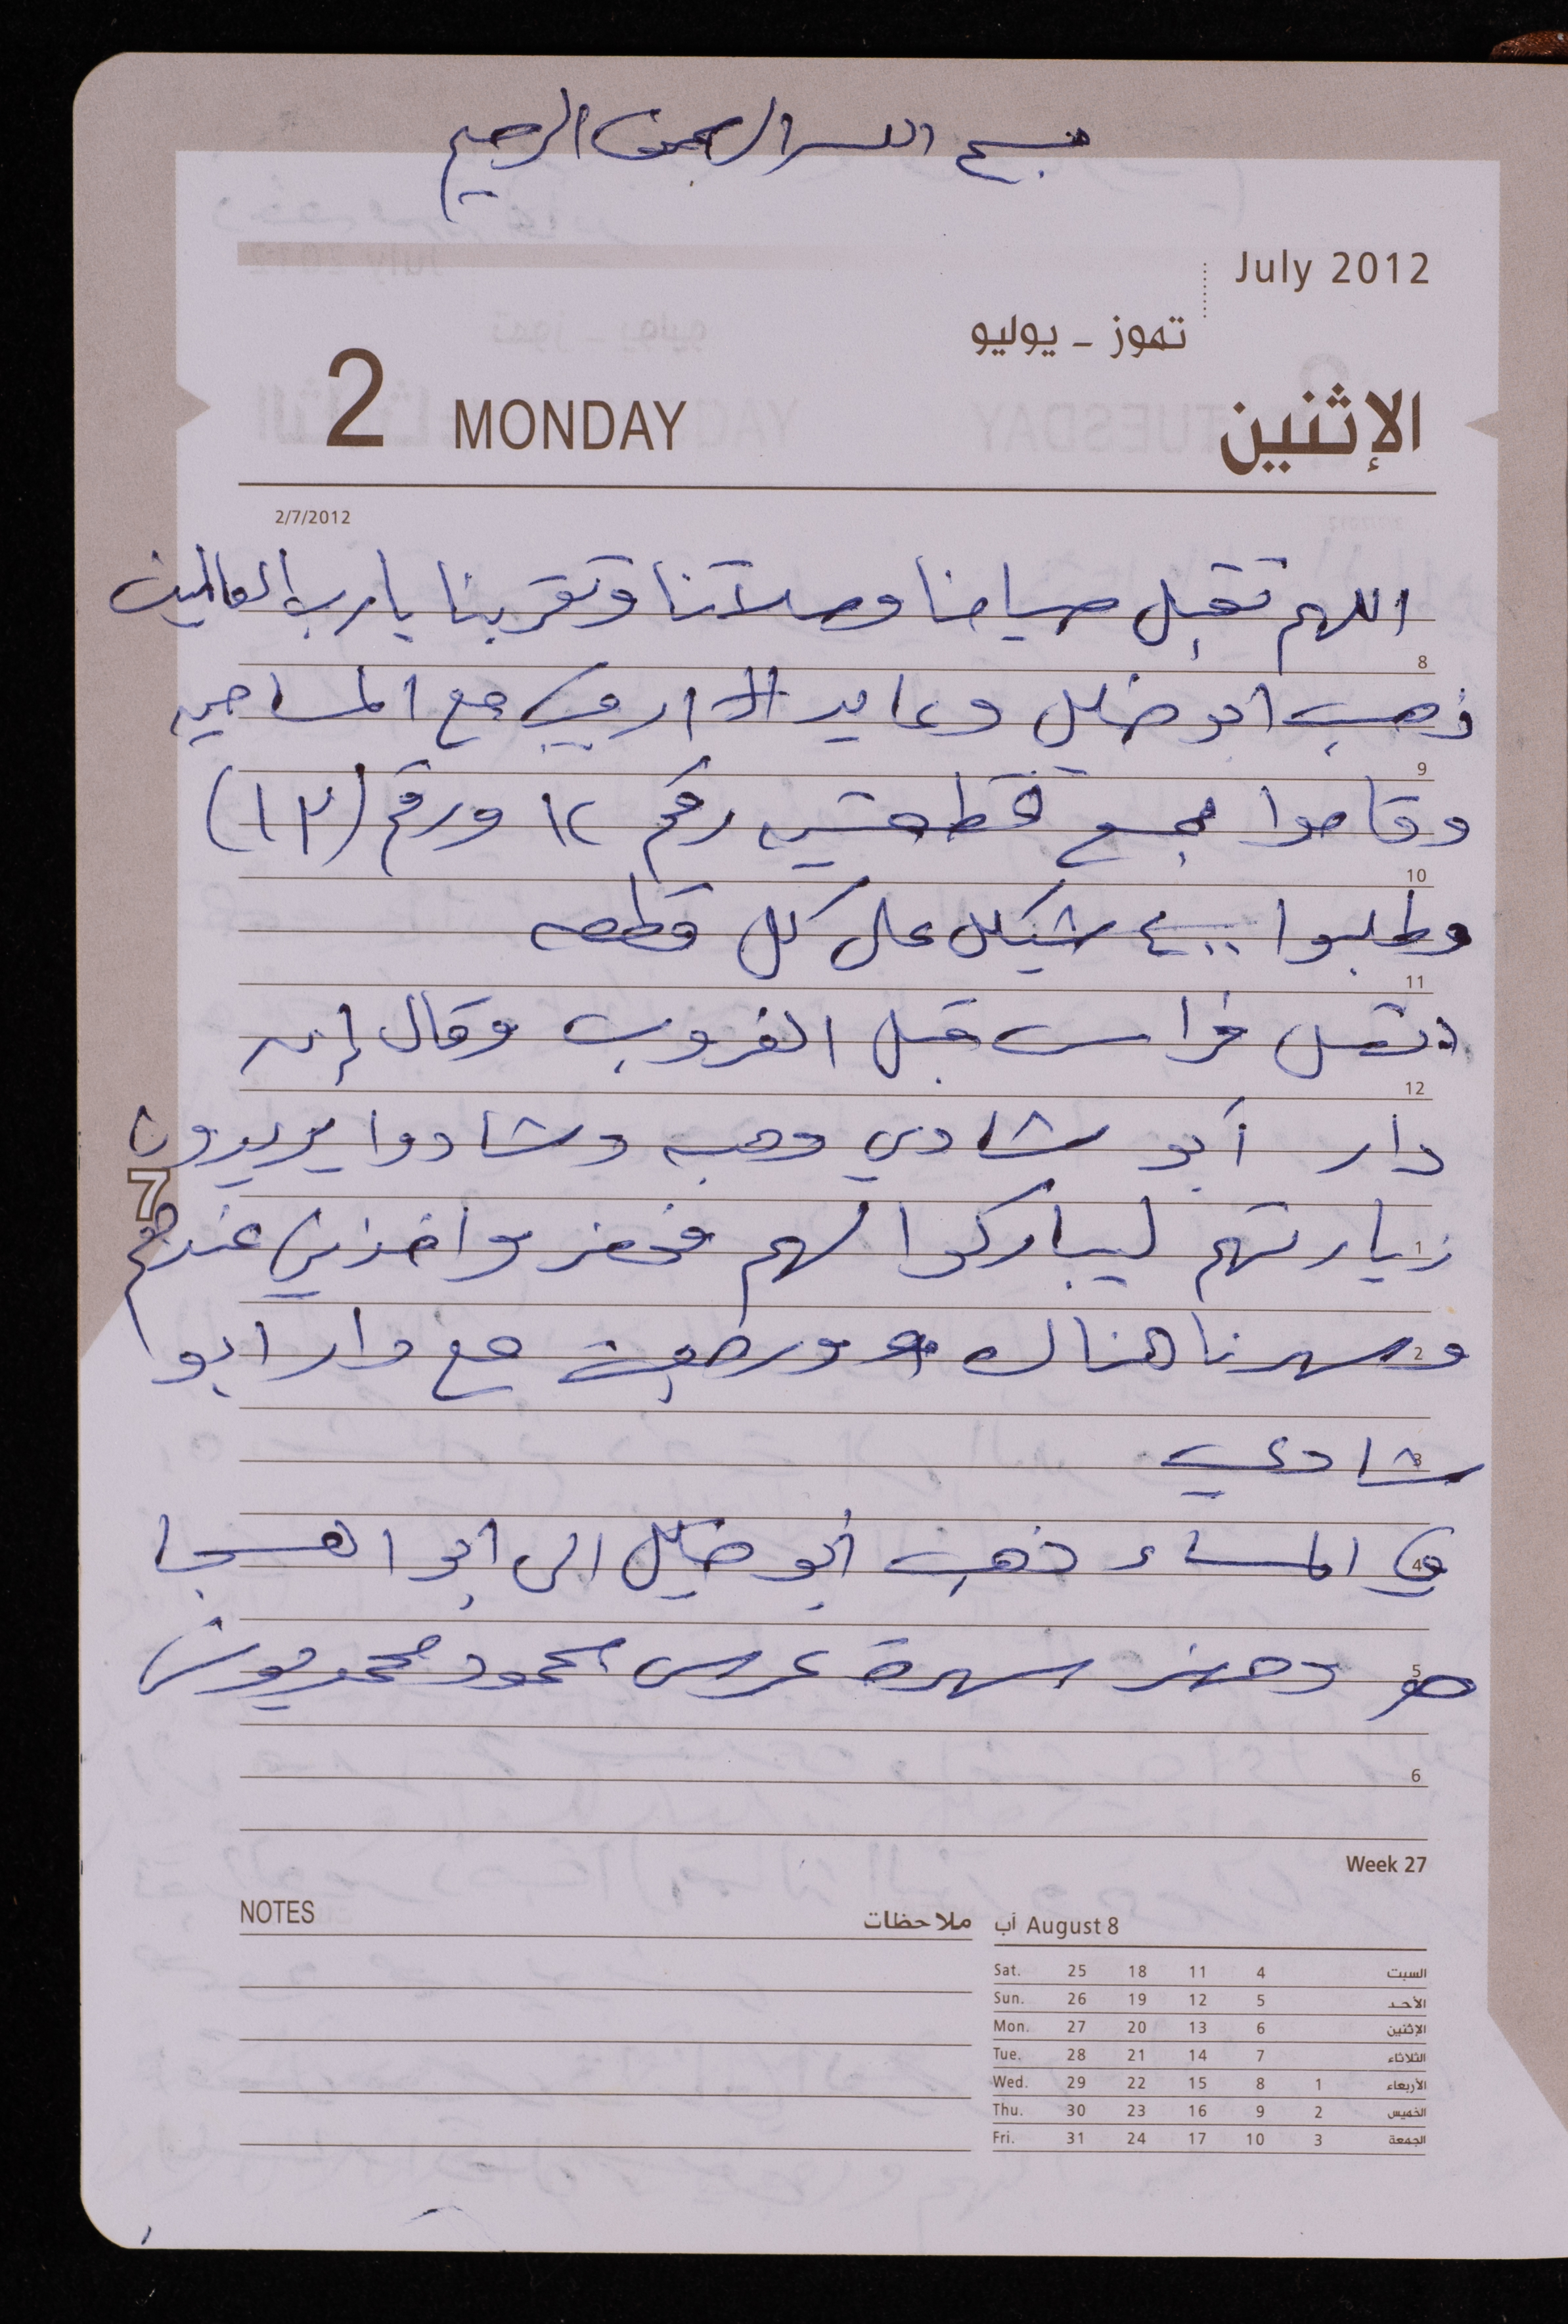 بسم الله الرحمن الرحيم
July 2012
تموز - يوليو
2 MONDAY الإثنين
2/7/2012
اللهم تقبل صيامنا وصلاتنا وتقربنا يارب العالمين
8
ذهب ابو خليل وعايد مع المساحين
9
وقاموا قطعتين رقم ١٢ ورقم (١٣)
10
وطلبوا ٤٠٠ شيكل على كل قطعه
11
اتصل فراس قبل الغروب وقال إن
12
دار أبو شادي وهبه وشادوا يريدون
7
زيارتهم ليباركوا لهم فحضر واخذني عندهم
1
وسهرنا هناك ورجعت مع دار ابو
2
شادي
3
في المساء ذهب أبو خليل الى ابو الهيجا
4
سهرة عرس محمود محمد
5
6
Week 27
NOTES ملاحظات
August 8 آب
Sat. 25 18 11 4 السبت
Sun. 26 19 12 5 الأحد
Mon. 27 20 13 6 الإثنين
Tue. 28 21 14 7 الثلاثاء
Wed. 29 22 15 8 1 الأربعاء
Thu. 30 23 16 9 2 الخميس
Fri. 31 24 17 10 3 الجمعة